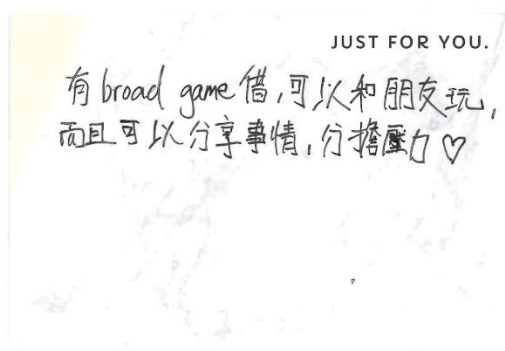 JUST FOR YOU.
有 broad game 借,可以和朋友玩,
而且可以分享事情,分擔壓力♡